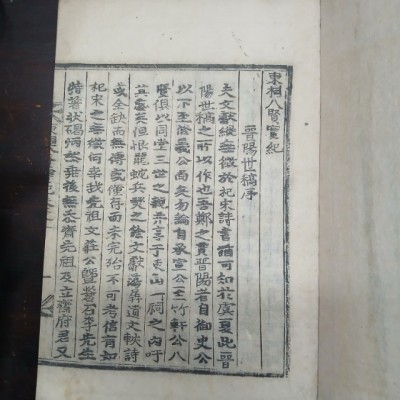 東祠八賢實紀
晉陽世稿序
夫文獻縱無徵於杞宋詩書猶可知於虞夏此晉
陽世稿之所以作也吾鄭之貫晉陽者自御史公
以下至公尚矣勿論自承宣公至竹軒公八
賢俱以同堂三世之親共享于東山一祠之內吁
其盛矣但恨龍蛇兵燹之餘文獻蕩殘遺文軼詩
或全缺而無傳或僅存而未完殆不可考信有如
杞宋之無徵何幸我先祖文莊公曁石李先生
特著狀碣炳然垂後無忝齋先祖及立齋府君又